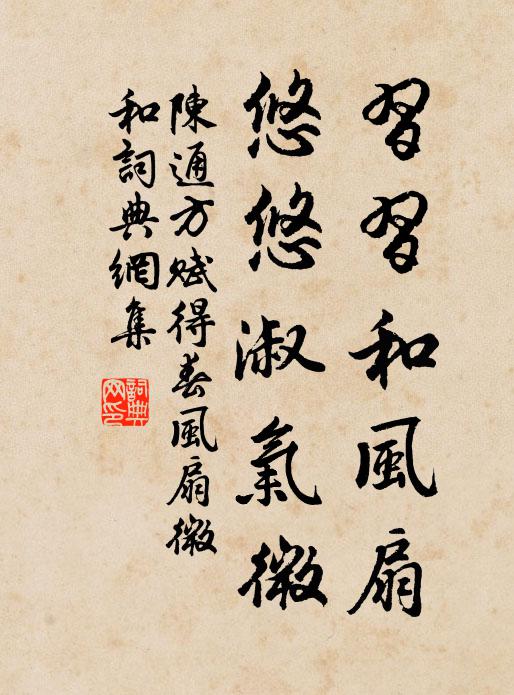 習習和風扇
悠悠淑氣微
陳通方賦得春風扇微
和詞典網集
詞典網印